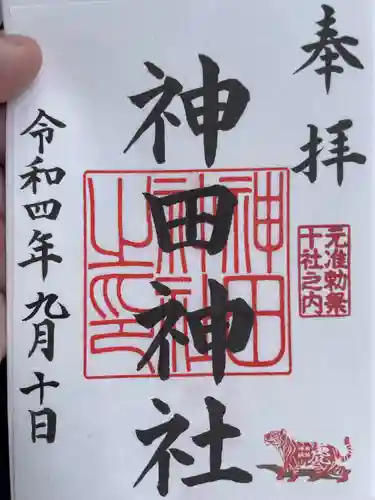 奉拝
元准勅祭
十社之内
神田神社
神田
神社
之印
令和四年九月十日